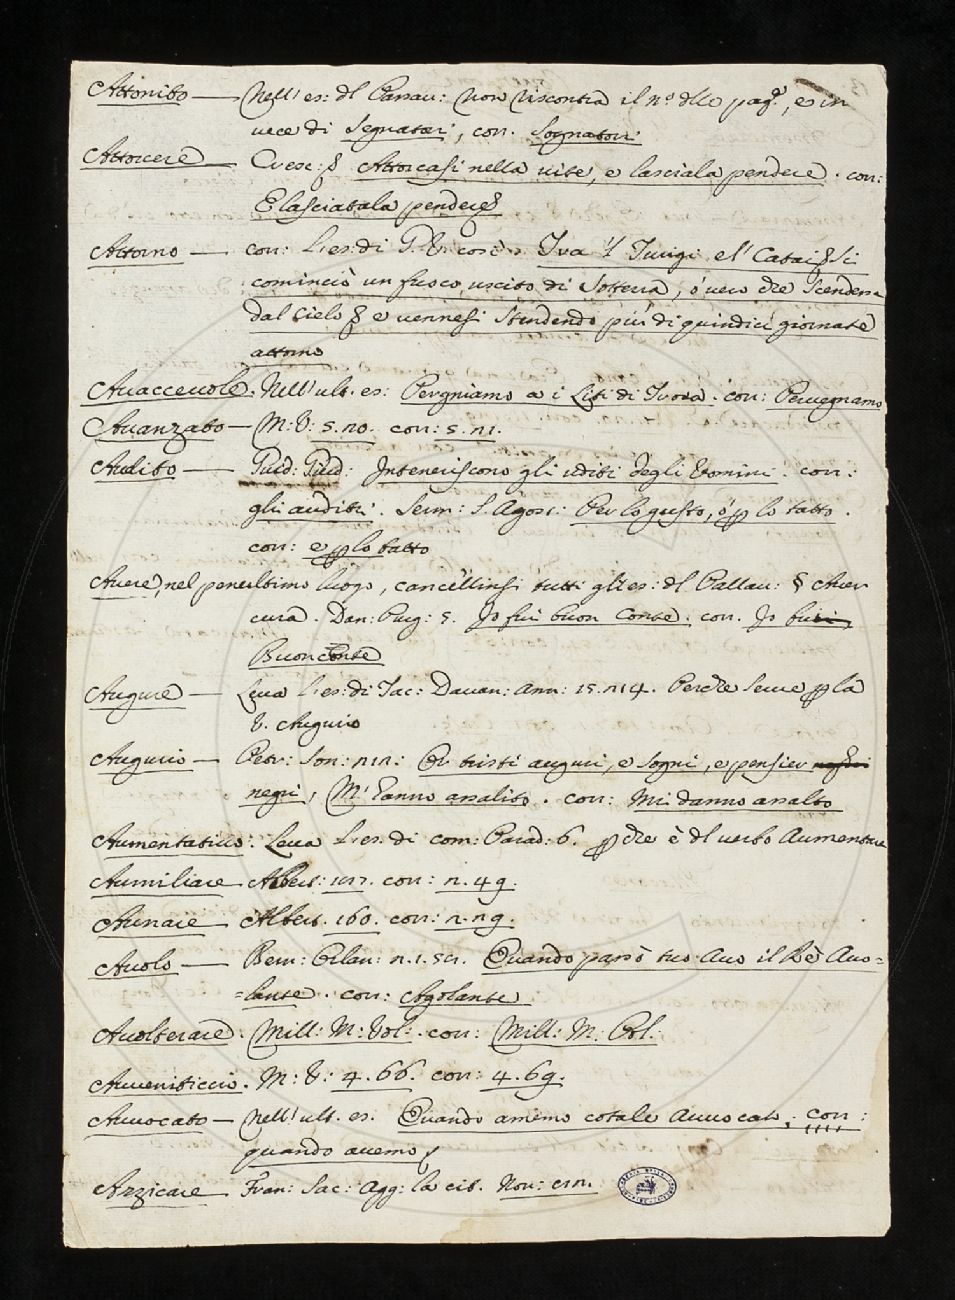 Attonito — Nell'es: dl Passav: non riscontra il n.º dlle pag.e, es in
vece di Segnatori, corr. Sognatori
Attorcere — Cresc: Attorcasi nella vite, e lasciala pendere. corr:
E lasciatala pendere
Attorno — corr: l'es: di G. V. così: Tra 'l Turigi e'l Catai Si
cominciò un fuoco uscito di Sotterra, o vero che Scendesse
dal Cielo e vennesi Stendendo più di quindici giornate
attorno
Avaccevole. Nell'ult. es: Pergniamo a i Liti di Troia. corr: Pervegnamo
Avanzato — M: V: 5. 20. corr: 5. 21.
Audito — Guid: Giud: Inteneriscono gli uditi degli Uomini. corr:
gli auditi. Serm: S. Agost: Per lo gusto, o p lo tatto.
corr: e p lo tatto
Avere, nel penultimo luogo, cancellinsi tutti gli es: dl Pallav: § Aver
cura. Dan: Purg: 5. Io fui buon Conte. corr. Io fui
Buonconte
Augure — Leva l'es: di Tac: Davan: ann: 15. 214. Perche serve p la
V. Augurio
Augurio — Petr: Son: 212: Or tristi auguri, e sogni, e pensier
negri, M'hanno assalito. corr: Mi danno assalto
Aumentativo. Leva l'es: di com: Parad: 6. p che è dl verbo Aumentare
Aumiliare Albert: 127. corr: n. 49.
Aunare Albert. 160. corr: n. 29.
Avolo — Bern: Orlan: 2. 1. 52. Quando passò tuo Avo il Rè Avo=
=lante. corr: Agolante
Avolterare. Mill: M: Vol: corr: Mill: M. Pol:
Avveniticcio. M: V: 4. 66. corr: 4. 69.
Avvocato — Nell'ult. es. Quando avemo cotale avvocato; corr:
quando avemo
Azzicare — Fran: Sac: agg: la cit. Nov: 122.